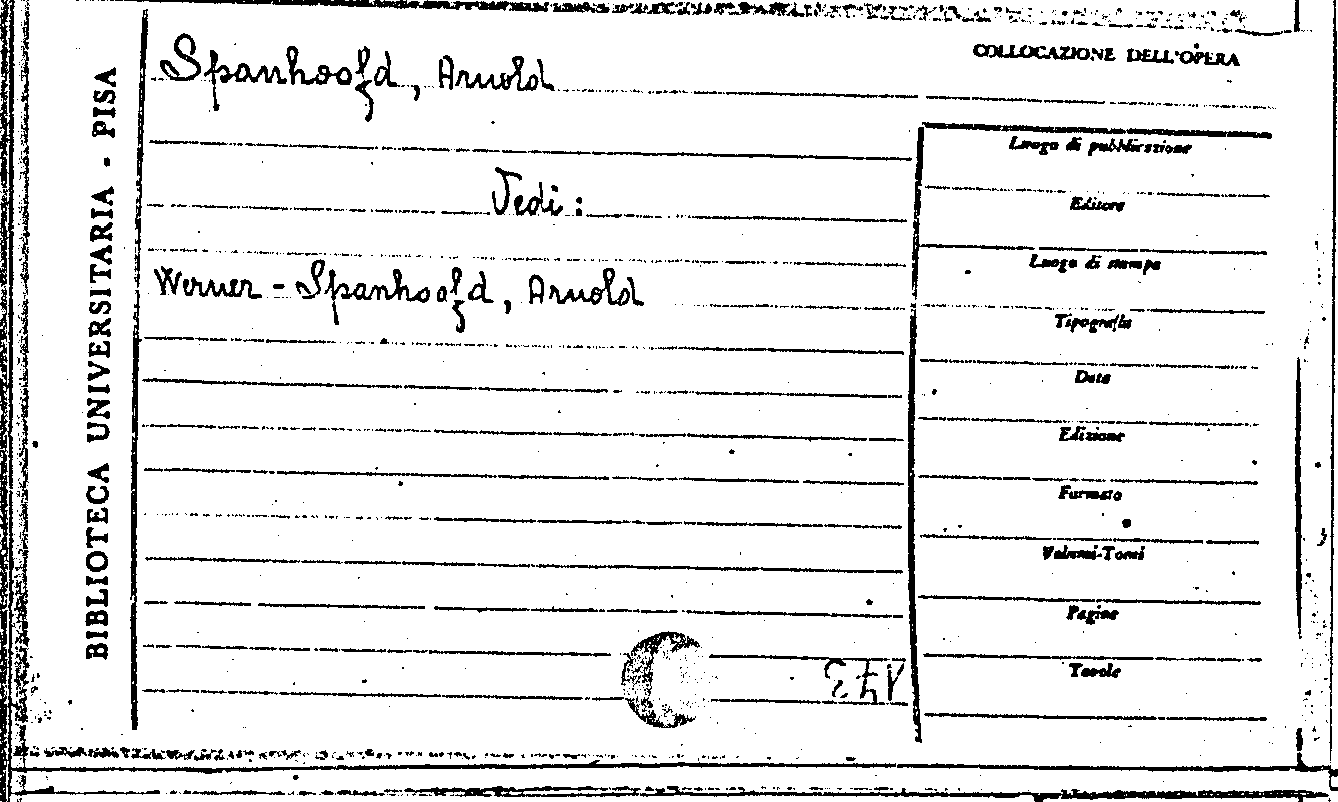 BIBLIOTECA UNIVERSITARIA - PISA
COLLOCAZIONE DELL'OPERA
Spanhoofd, Arnold
Vedi:
Werner-Spanhoofd, Arnold
Luogo di pubblicazione
Editore
Luogo di stampa
Tipografia
Data
Edizione
Formato
Volumi-Tomi
Pagine
Tavole